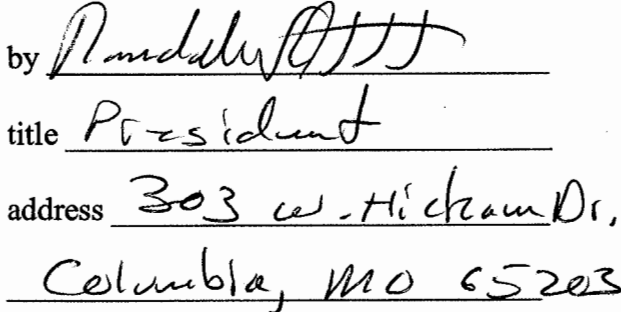 by
title President
address 303 W. Hickam Dr.,
Columbia, MO 65203